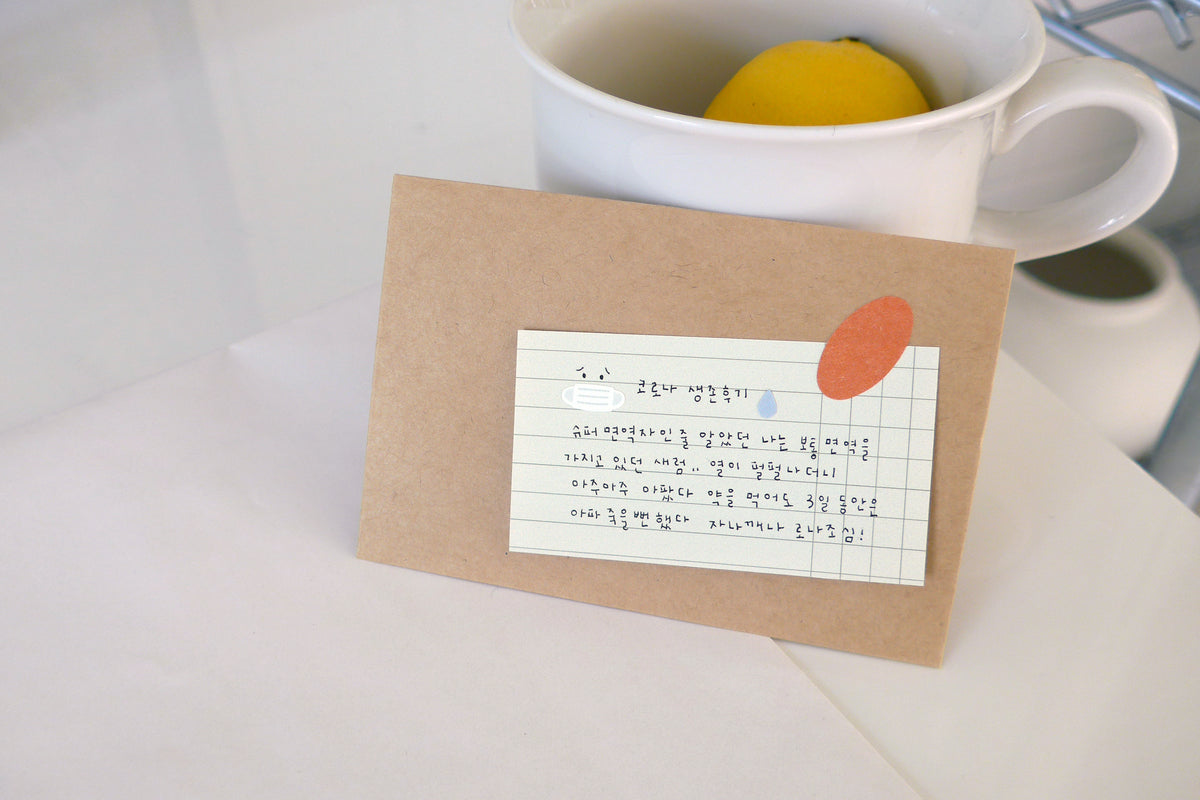 코로나 생존후기
슈퍼 면역자인줄 알았던 나는 보통 면역을
가지고 있던 새럼.. 열이 펄펄나더니
아주아주 아팠다 약을 먹어도 3일 동안은
아파 죽을뻔 했다 자나깨나 로나조심!